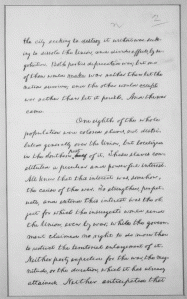 the city seeking to destroy it without war seek-
ing to dissolve the Union, and divide effects, by ne-
gotiation. Both parties deprecated war; but one
of them would make war rather than let the
nation survive; and the other would accept
war rather than let it perish. And the war
came.
One eighth of the whole
population were colored slaves, not distri-
buted generally over the Union, but localized
in the Southern part of it. These slaves con-
stituted a peculiar and powerful interest.
All knew that this interest was, somehow,
the cause of the war. To strengthen, perpet-
uate, and extend this interest was the ob-
ject for which the insurgents would rend
the Union, even by war; while the govern-
ment claimed no right to do more than
to restrict the territorial enlargement of it.
Neither party expected for the war, the mag-
nitude, or the duration, which it has already
attained. Neither anticipated that